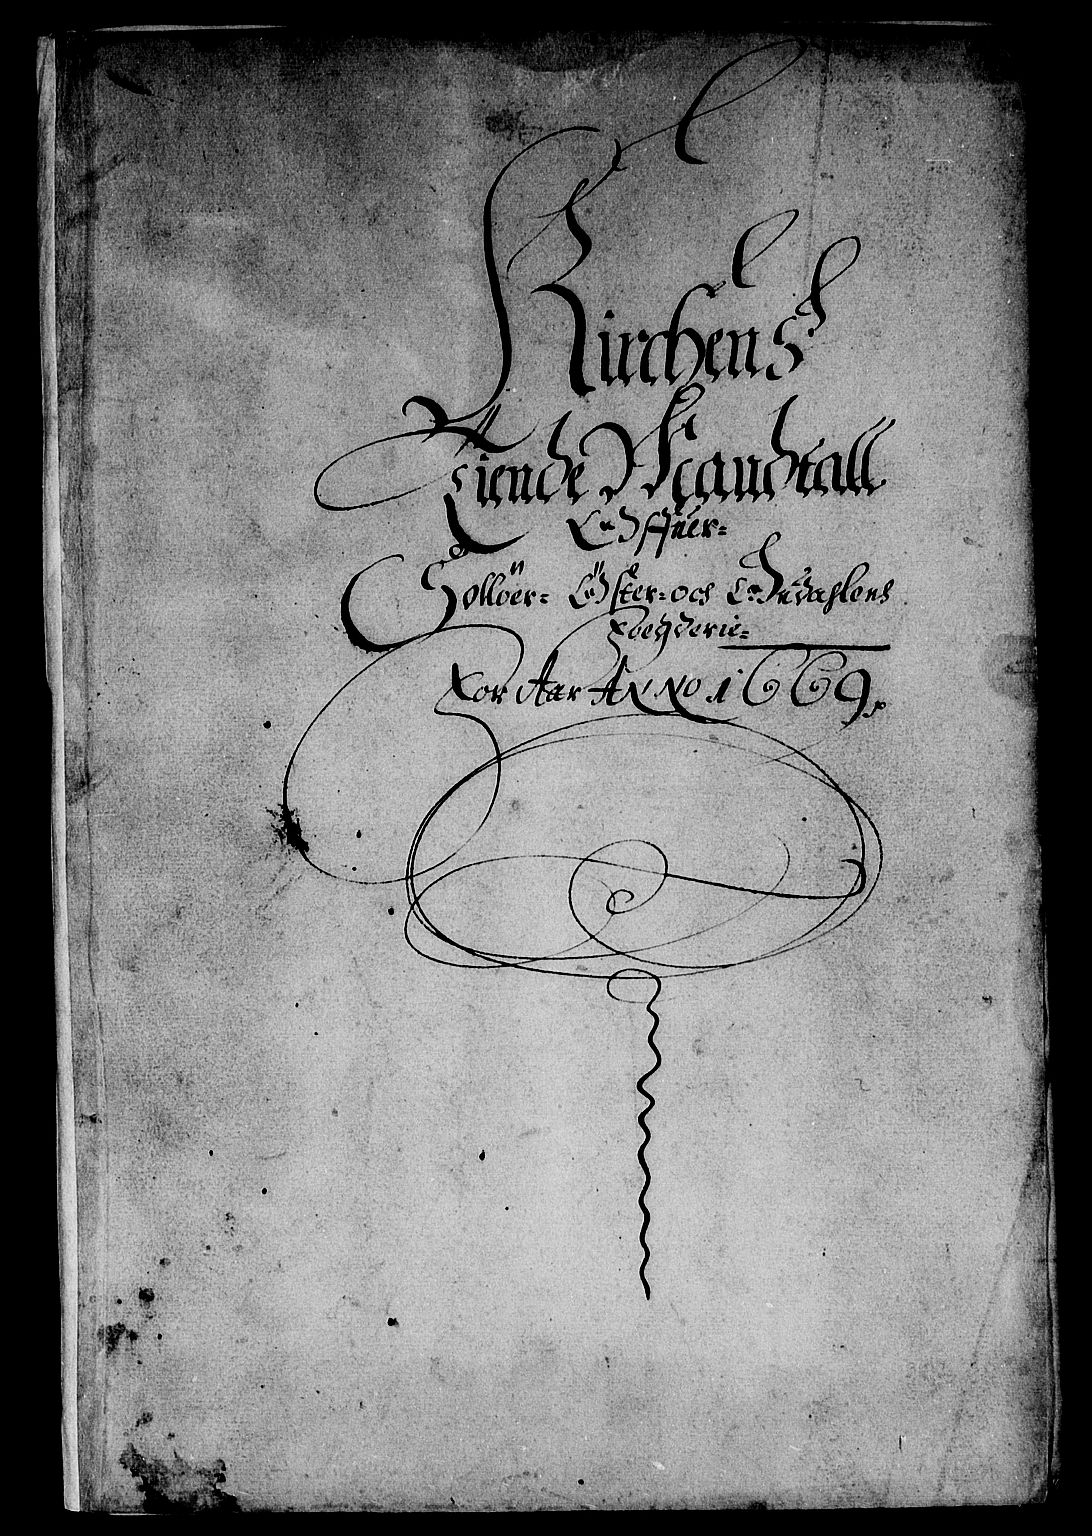 Kirchens
Tiende Mandtall
Offuer
Sollöer= Öster= och Ørdahlens
Foegderie=
For Aar ANNO 1669